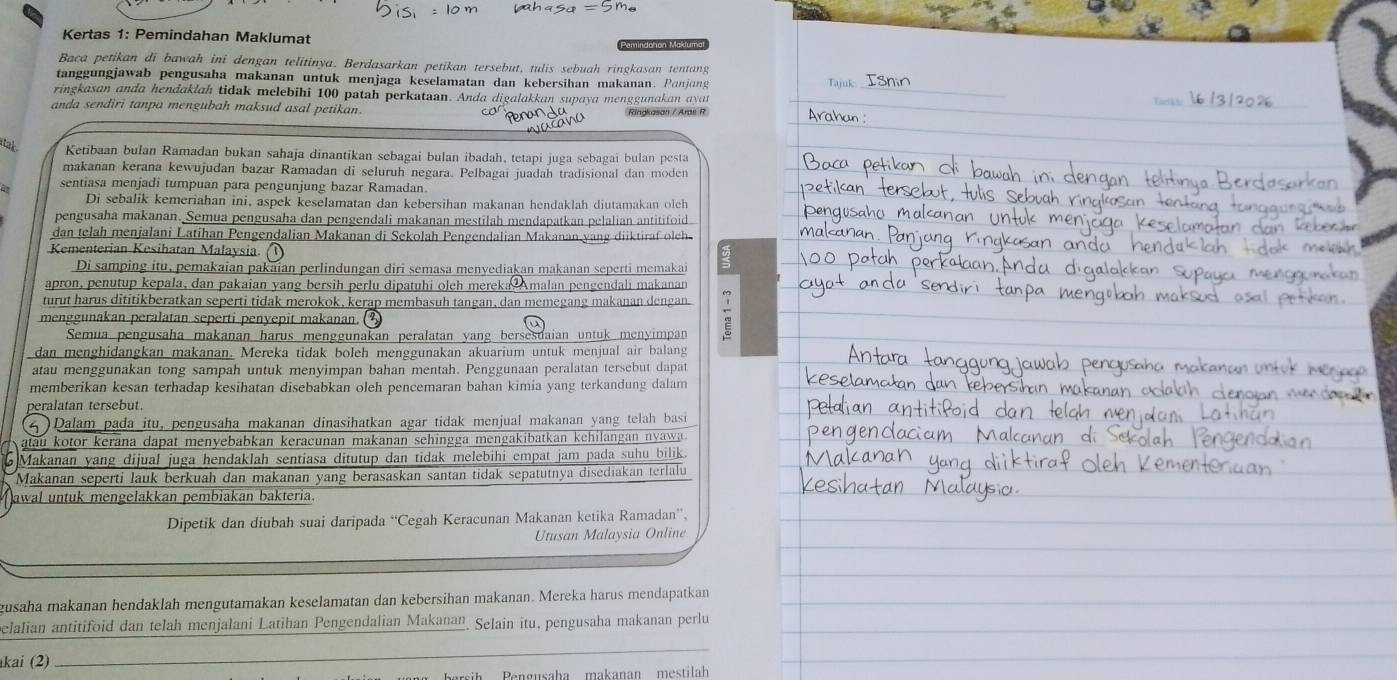 isi = 10m bahasa = 5m
Kertas 1: Pemindahan Maklumat
Pemindahan Maklumat
Baca petikan di bawah ini dengan telitinya. Berdasarkan petikan tersebut, tulis sebuah ringkasan tentang
tanggungjawab pengusaha makanan untuk menjaga keselamatan dan kebersihan makanan. Panjang
ringkasan anda hendaklah tidak melebihi 100 patah perkataan. Anda digalakkan supaya menggunakan ayat
anda sendiri tanpa mengubah maksud asal petikan.
Ringkasan / Aras R
cari Penanda
wacana
Ketibaan bulan Ramadan bukan sahaja dinantikan sebagai bulan ibadah, tetapi juga sebagai bulan pesta
makanan kerana kewujudan bazar Ramadan di seluruh negara. Pelbagai juadah tradisional dan moden
sentiasa menjadi tumpuan para pengunjung bazar Ramadan.
Di sebalik kemeriahan ini, aspek keselamatan dan kebersihan makanan hendaklah diutamakan oleh
pengusaha makanan. Semua pengusaha dan pengendali makanan mestilah mendapatkan pelalian antitifoid
dan telah menjalani Latihan Pengendalian Makanan di Sekolah Pengendalian Makanan yang diiktiraf oleh
Kementerian Kesihatan Malaysia. 1
Di samping itu, pemakaian pakaian perlindungan diri semasa menyediakan makanan seperti memakai
apron, penutup kepala, dan pakaian yang bersih perlu dipatuhi oleh mereka. 2 Amalan pengendali makanan
turut harus dititikberatkan seperti tidak merokok, kerap membasuh tangan, dan memegang makanan dengan
menggunakan peralatan seperti penyepit makanan. 3
4
Semua pengusaha makanan harus menggunakan peralatan yang bersesuaian untuk menyimpan
dan menghidangkan makanan. Mereka tidak boleh menggunakan akuarium untuk menjual air balang
atau menggunakan tong sampah untuk menyimpan bahan mentah. Penggunaan peralatan tersebut dapat
memberikan kesan terhadap kesihatan disebabkan oleh pencemaran bahan kimia yang terkandung dalam
peralatan tersebut.
5 Dalam pada itu, pengusaha makanan dinasihatkan agar tidak menjual makanan yang telah basi
atau kotor kerana dapat menyebabkan keracunan makanan sehingga mengakibatkan kehilangan nyawa.
6 Makanan yang dijual juga hendaklah sentiasa ditutup dan tidak melebihi empat jam pada suhu bilik.
Makanan seperti lauk berkuah dan makanan yang berasaskan santan tidak sepatutnya disediakan terlalu
awal untuk mengelakkan pembiakan bakteria.
Dipetik dan diubah suai daripada “Cegah Keracunan Makanan ketika Ramadan”,
Utusan Malaysia Online
gusaha makanan hendaklah mengutamakan keselamatan dan kebersihan makanan. Mereka harus mendapatkan
pelalian antitifoid dan telah menjalani Latihan Pengendalian Makanan. Selain itu, pengusaha makanan perlu
akai (2)
bersih Pengusaha makanan mestilah
UASA
Tema 1 – 3
Tajuk: Isnin
Tarikh: 16/3/2026
Arahan:
Baca petikan di bawah ini dengan telitinya. Berdasarkan
petikan tersebut, tulis sebuah ringkasan tentang tanggungjawab
pengusaha makanan untuk menjaga keselamatan dan
makanan. Panjang ringkasan anda hendaklah tidak
100 patah perkataan. Anda digalakkan supaya menggunakan
ayat anda sendiri tanpa mengubah maksud asal petikan.
Antara tanggungjawab pengusaha makanan untuk menjaga
keselamatan dan kebersihan makanan adalah dengan
petalian antitifoid dan telah menjalani Latihan
pengendaciam Makanan di Sekolah Pengendalian
Makanan yang diiktiraf oleh Kementerian
Kesihatan Malaysia.